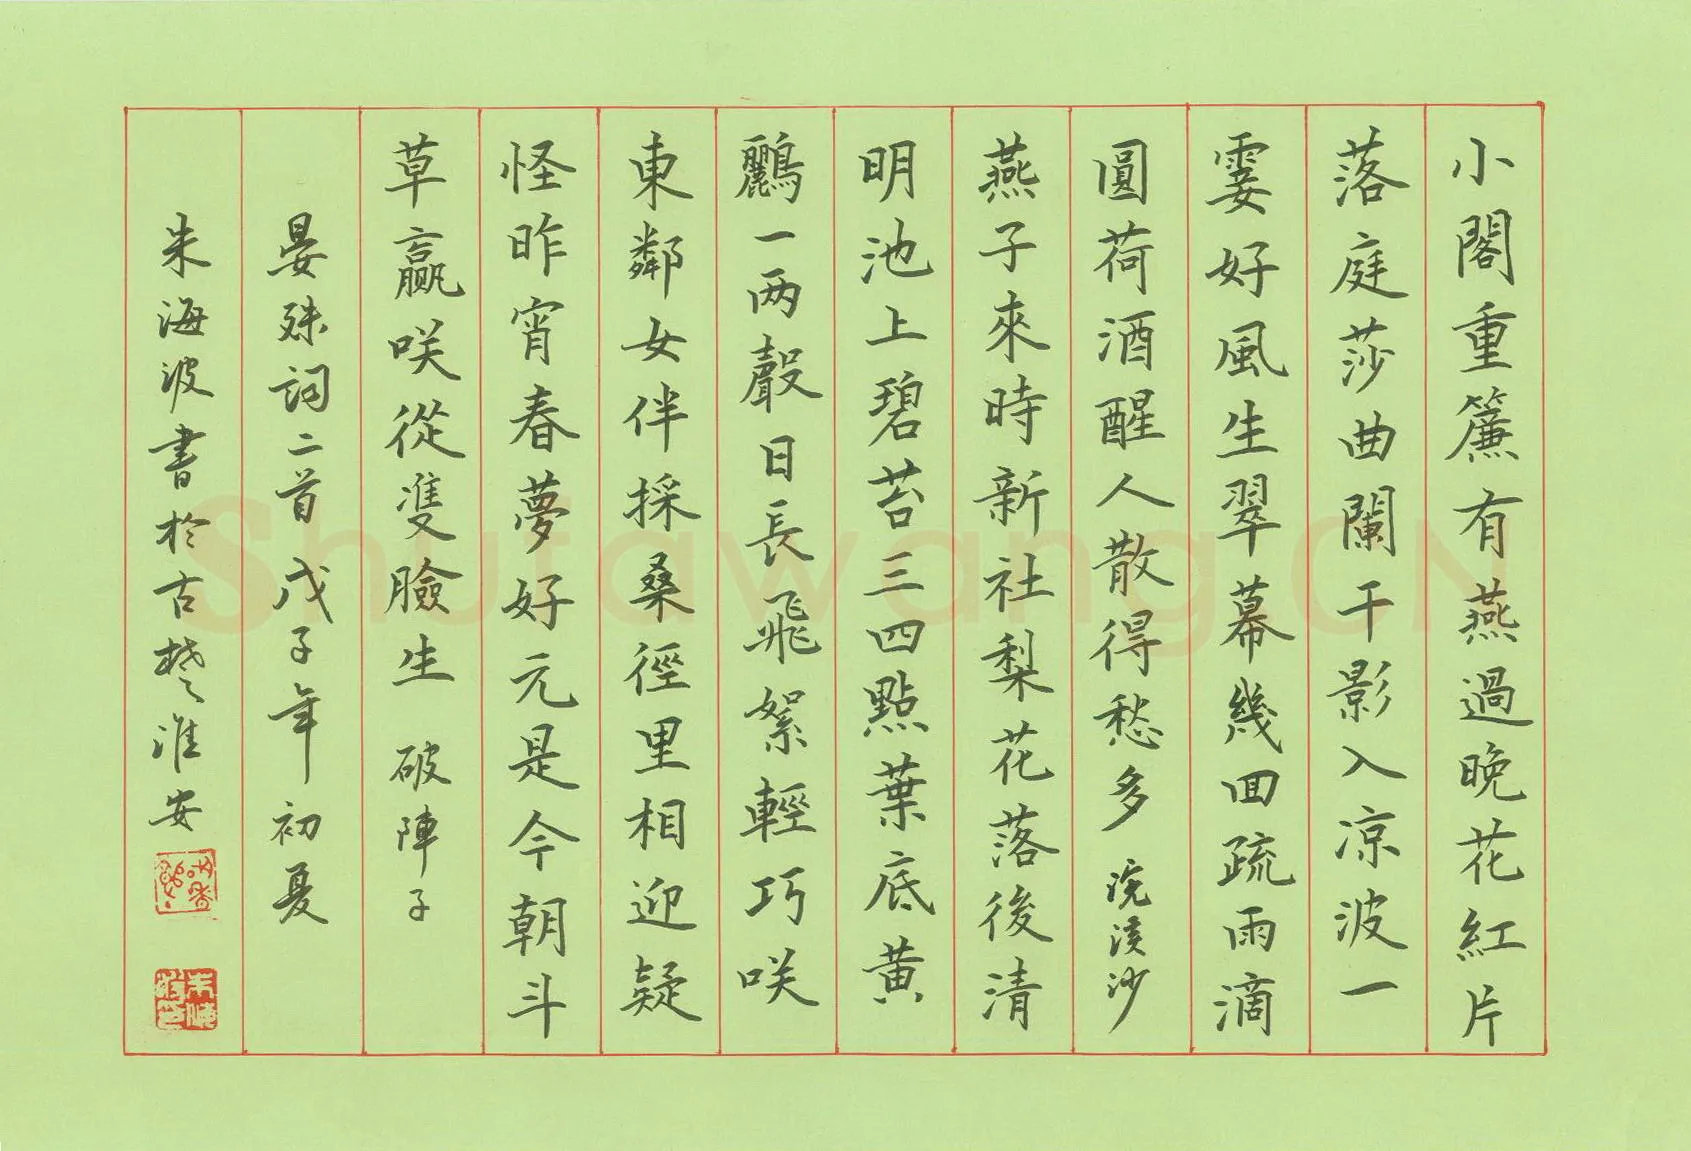 小閣重簾有燕過晚花紅片
落庭莎曲闌干影入凉波一
霎好風生翠幕幾回疏雨滴
圓荷酒醒人散得愁多 浣溪沙
燕子來時新社梨花落後清
明池上碧苔三四點葉底黃
鸝一两聲日長飛絮輕巧咲
東鄰女伴採桑徑里相迎疑
怪昨宵春夢好元是今朝斗
草贏咲從雙臉生 破陣子
晏殊詞二首戊子年初夏
朱海波書於古楚淮安
Shufawang.CN